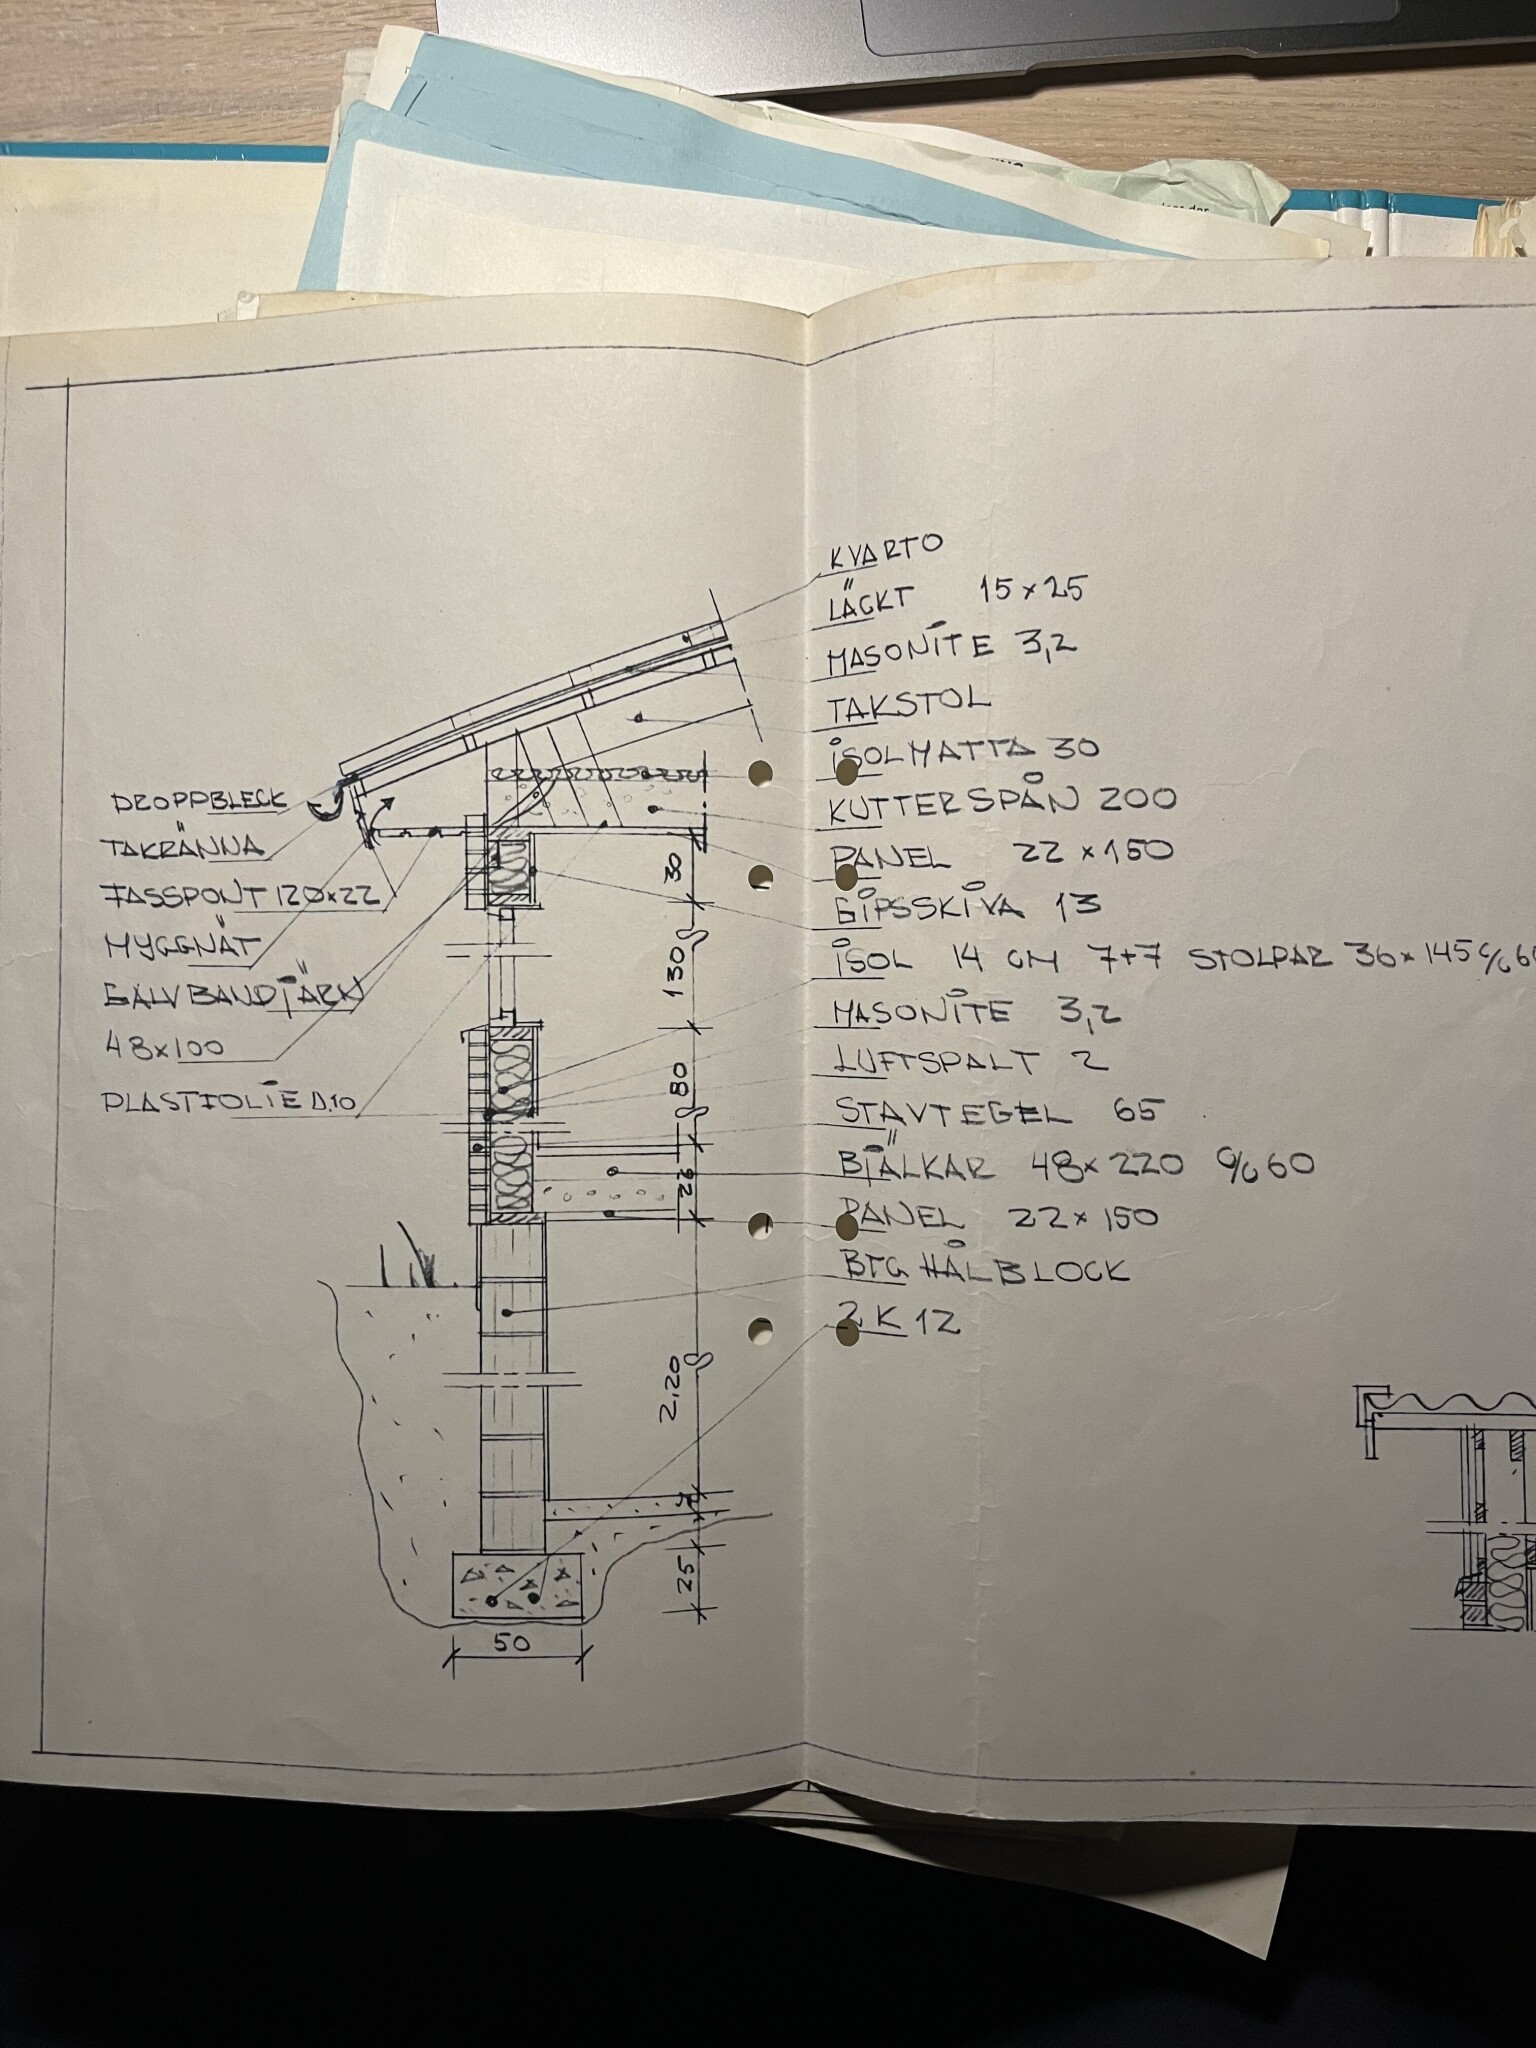 KVARTO
LÄCKT 15×25
MASONITE 3,2
TAKSTOL
ISOLMATTA 30
KUTTERSPÅN 200
PANEL 22×150
GIPSSKIVA 13
ISOL 14 CM 7+7 STOLPAR 36×145 c/c 60
MASONITE 3,2
LUFTSPALT 2
STAVTEGEL 65
BJÄLKAR 48×220 c/c 60
PANEL 22×150
BTG HÅLBLOCK
2 K 12
DROPPBLECK
TAKRÄNNA
FASSPONT 120×22
MYGGNÄT
GALV BANDJÄRN
48×100
PLASTFOLIE 0.10
30
130
80
2,20
25
50